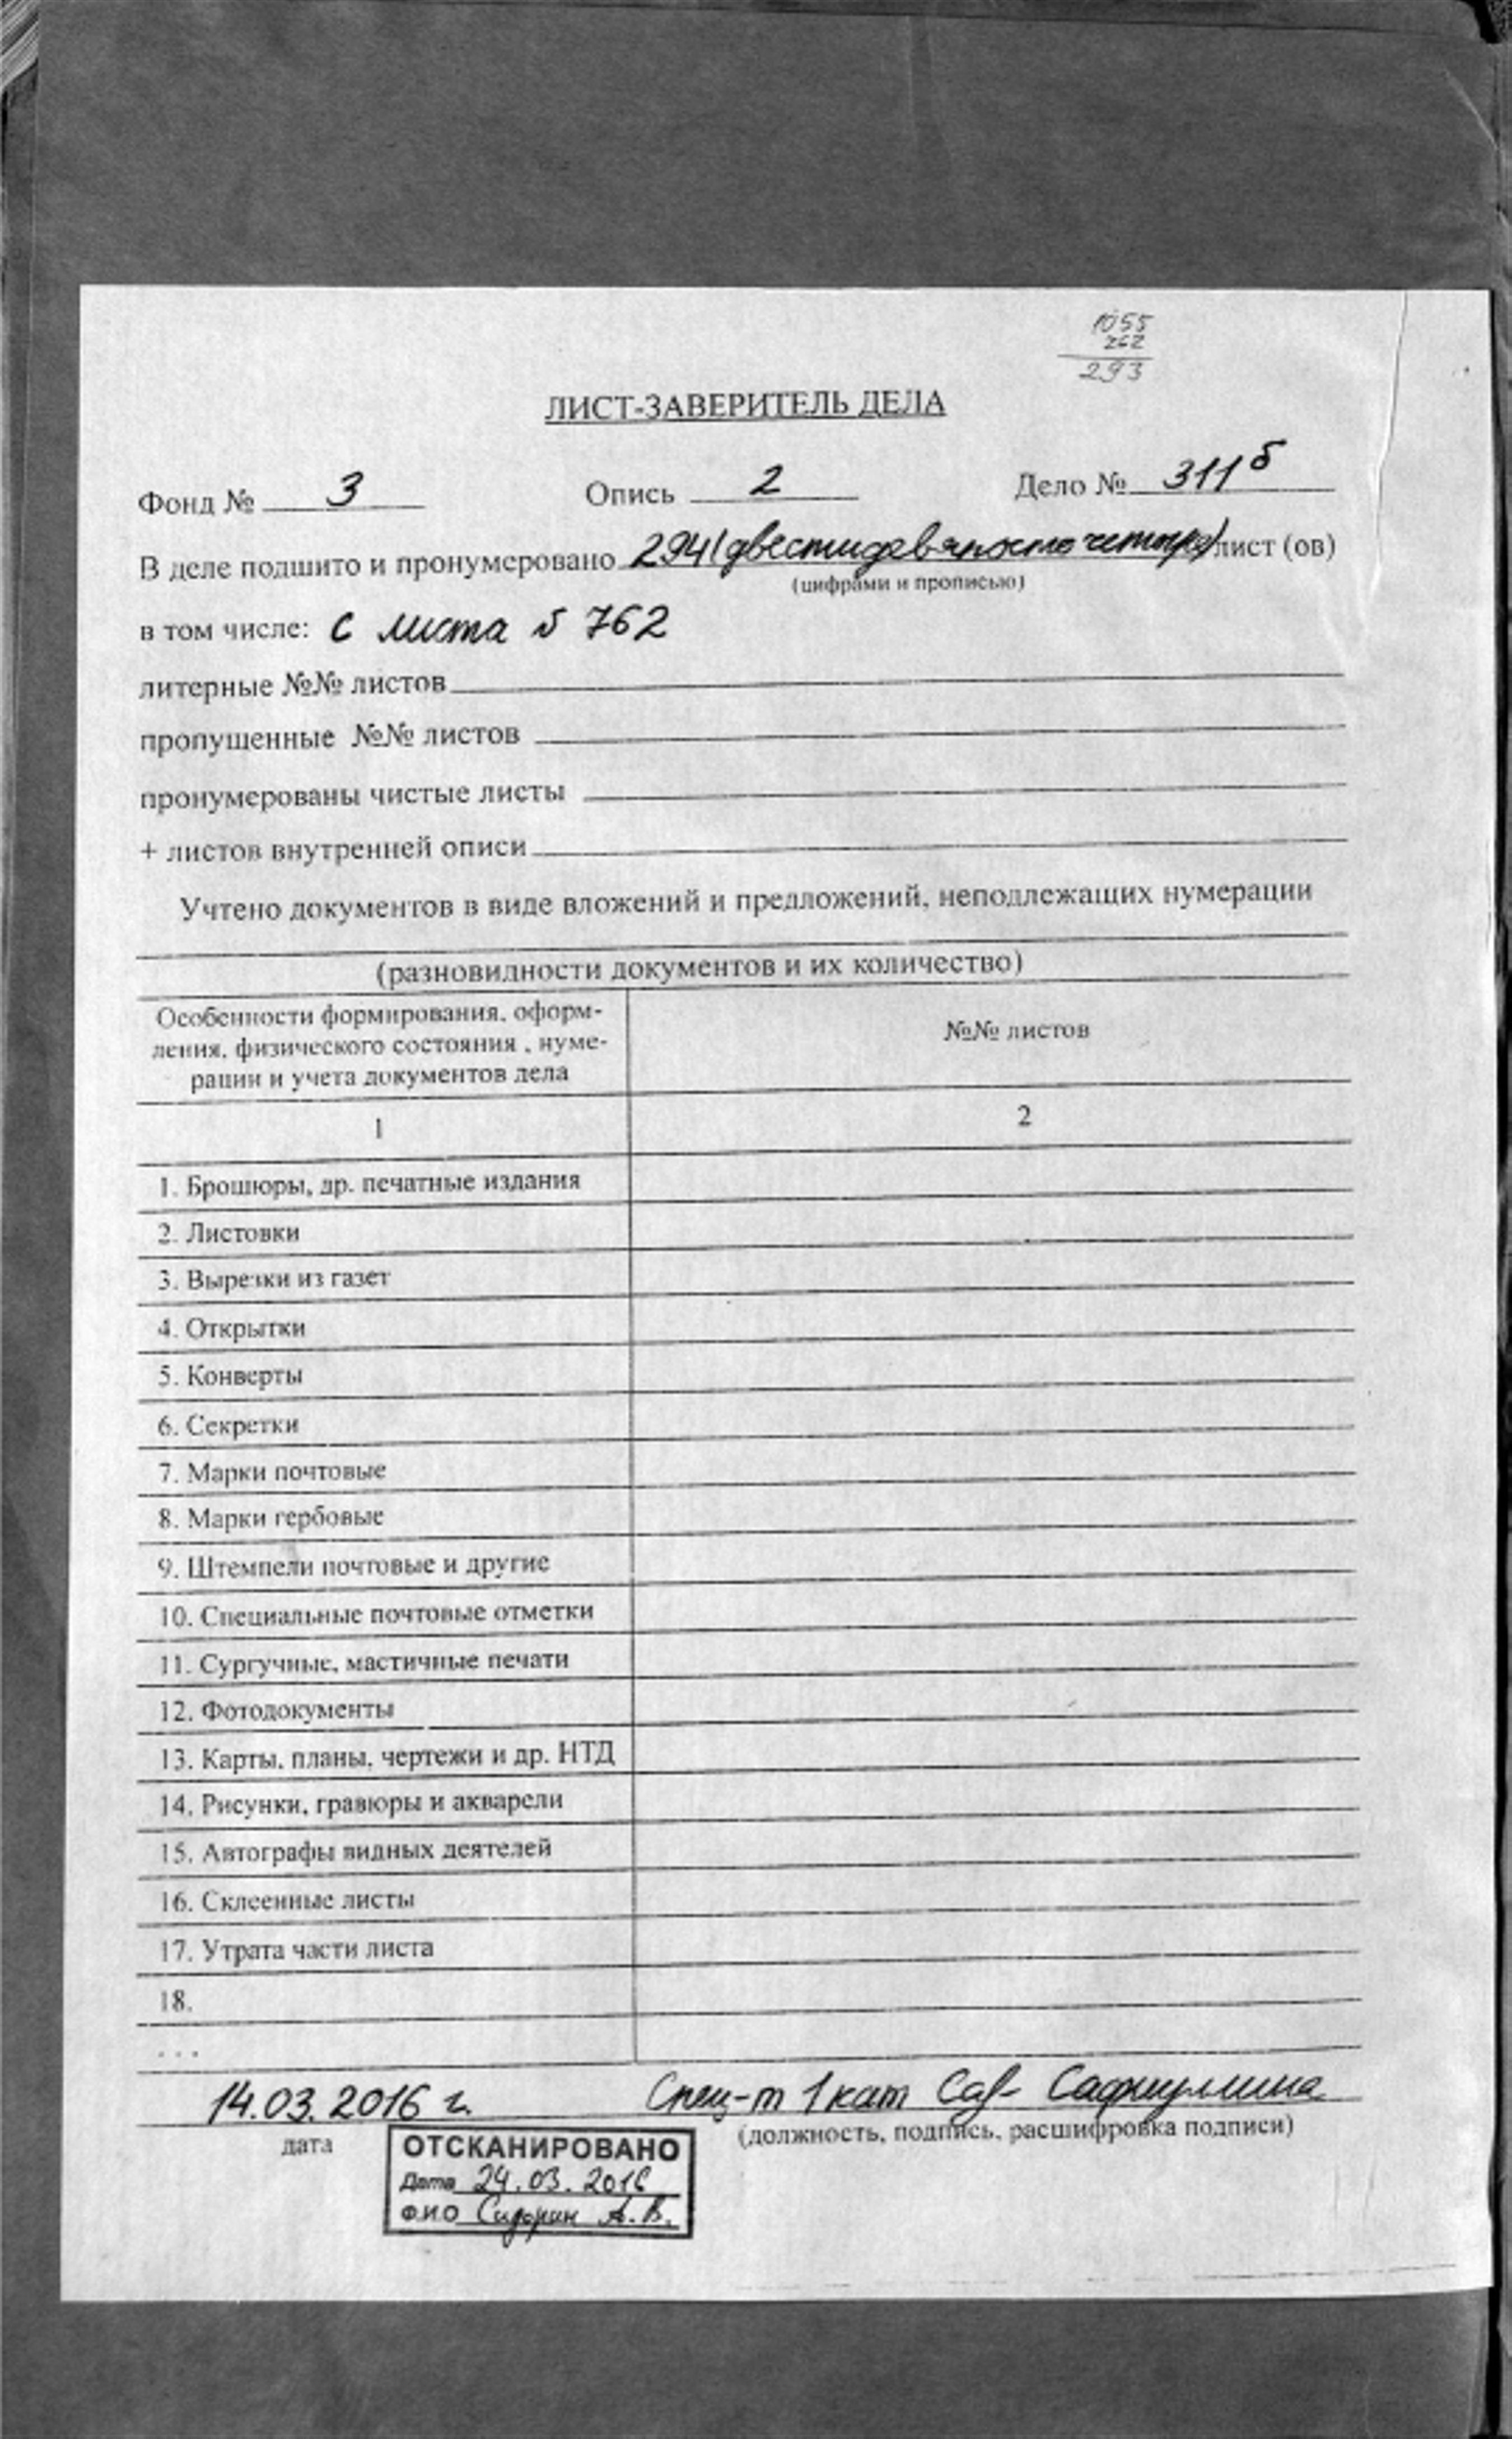 1055
262
293
ЛИСТ-ЗАВЕРИТЕЛЬ ДЕЛА
Фонд № 3 Опись 2 Дело № 311б
В деле подшито и пронумеровано 294 (двести девяносто четыре) лист (ов)
(цифрами и прописью)
в том числе: с листа 762
литерные №№ листов
пропущенные №№ листов
пронумерованы чистые листы
+ листов внутренней описи
Учтено документов в виде вложений и предложений, неподлежащих нумерации
(разновидности документов и их количество)
Особенности формирования, оформ-
ления, физического состояния , нуме-
рации и учета документов дела
№№ листов
1 2
1. Брошюры, др. печатные издания
2. Листовки
3. Вырезки из газет
4. Открытки
5. Конверты
6. Секретки
7. Марки почтовые
8. Марки гербовые
9. Штемпели почтовые и другие
10. Специальные почтовые отметки
11. Сургучные, мастичные печати
12. Фотодокументы
13. Карты, планы, чертежи и др. НТД
14. Рисунки, гравюры и акварели
15. Автографы видных деятелей
16. Склеенные листы
17. Утрата части листа
18.
. . .
14.03.2016 г. Спец-т 1 кат Сафиуллина
дата (должность, подпись, расшифровка подписи)
ОТСКАНИРОВАНО
Дата 24.03.2016
Ф.И.О Сидорин А.В.